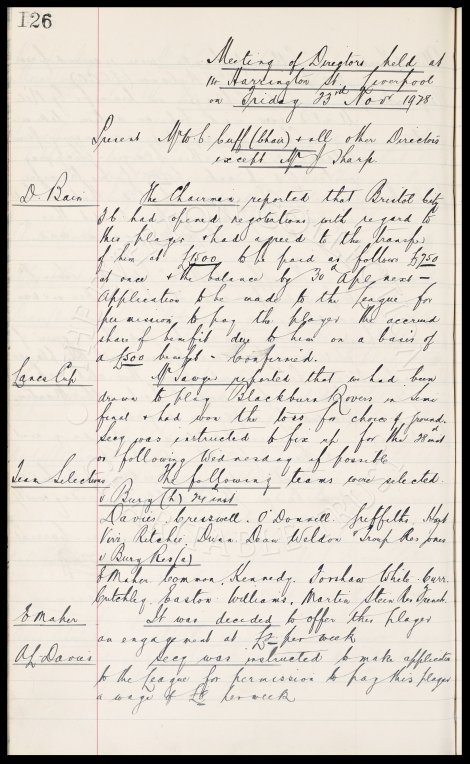 126
Meeting of Directors held at
14 Harrington St Liverpool
on Friday 23rd Novr 1928
Present Mr W. C. Cuff (Chair) & all other Directors
except Mr J Sharp.
D. Bain
The Chairman reported that Bristol City
F.C. had opened negotiations with regard to
this player & had agreed to the transfer
of him at £1500 to be paid as follows £750
at once & the balance by 30th Apl next —
Application to be made to the League for
permission to pay the player the accrued
share of benefit due to him on a basis of
a £500 benefit - Confirmed.
Lancs Cup
Mr Sawyer reported that we had been
drawn to play Blackburn Rovers in semi
final & had won the toss for choice of ground.
Secy was instructed to fix up for the 28th inst
or following Wednesday if possible
Team Selections
The following teams were selected.
v Bury (h) 24th inst
Davies, Cresswell, O'Donnell, Griffiths, Hart
Virr, Ritchie, Dunn, Dean, Weldon & Troup Res Jones
v Bury Res (a)
E Maher Common, Kennedy, Forshaw White Curr.
Critchley, Easton Williams, Martin Stein Res French.
E Maher
It was decided to offer this player
an engagement at per week
A.L. Davies
Secy was instructed to make application
to the League for permission to pay this player
a wage of £8 per week